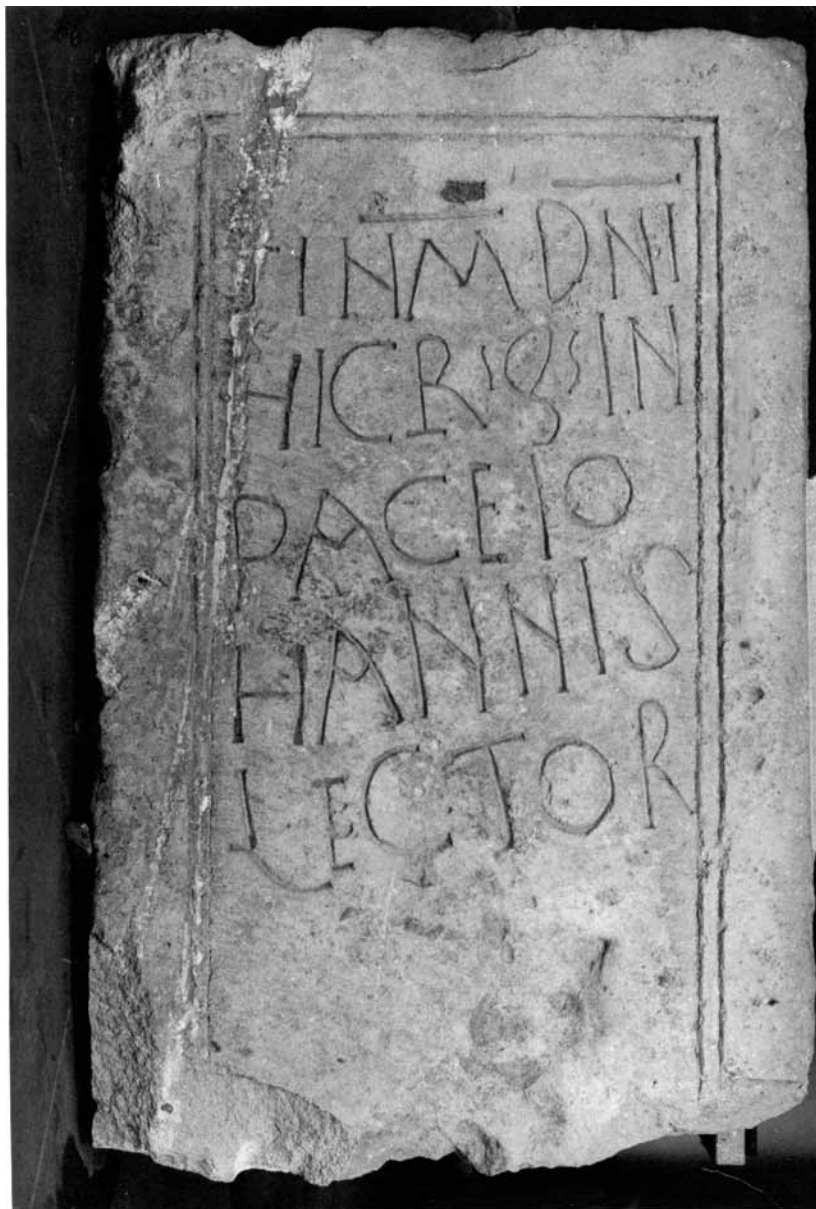 † IN M DNI
HIC R'gS IN
PACE IO
HANNIS
LECTOR